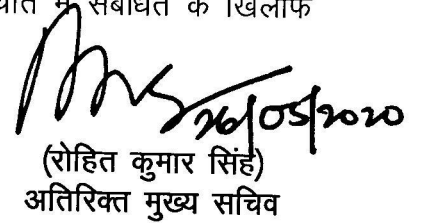 में संबंधित के खिलाफ
26/05/2020
(रोहित कुमार सिंह)
अतिरिक्त मुख्य सचिव